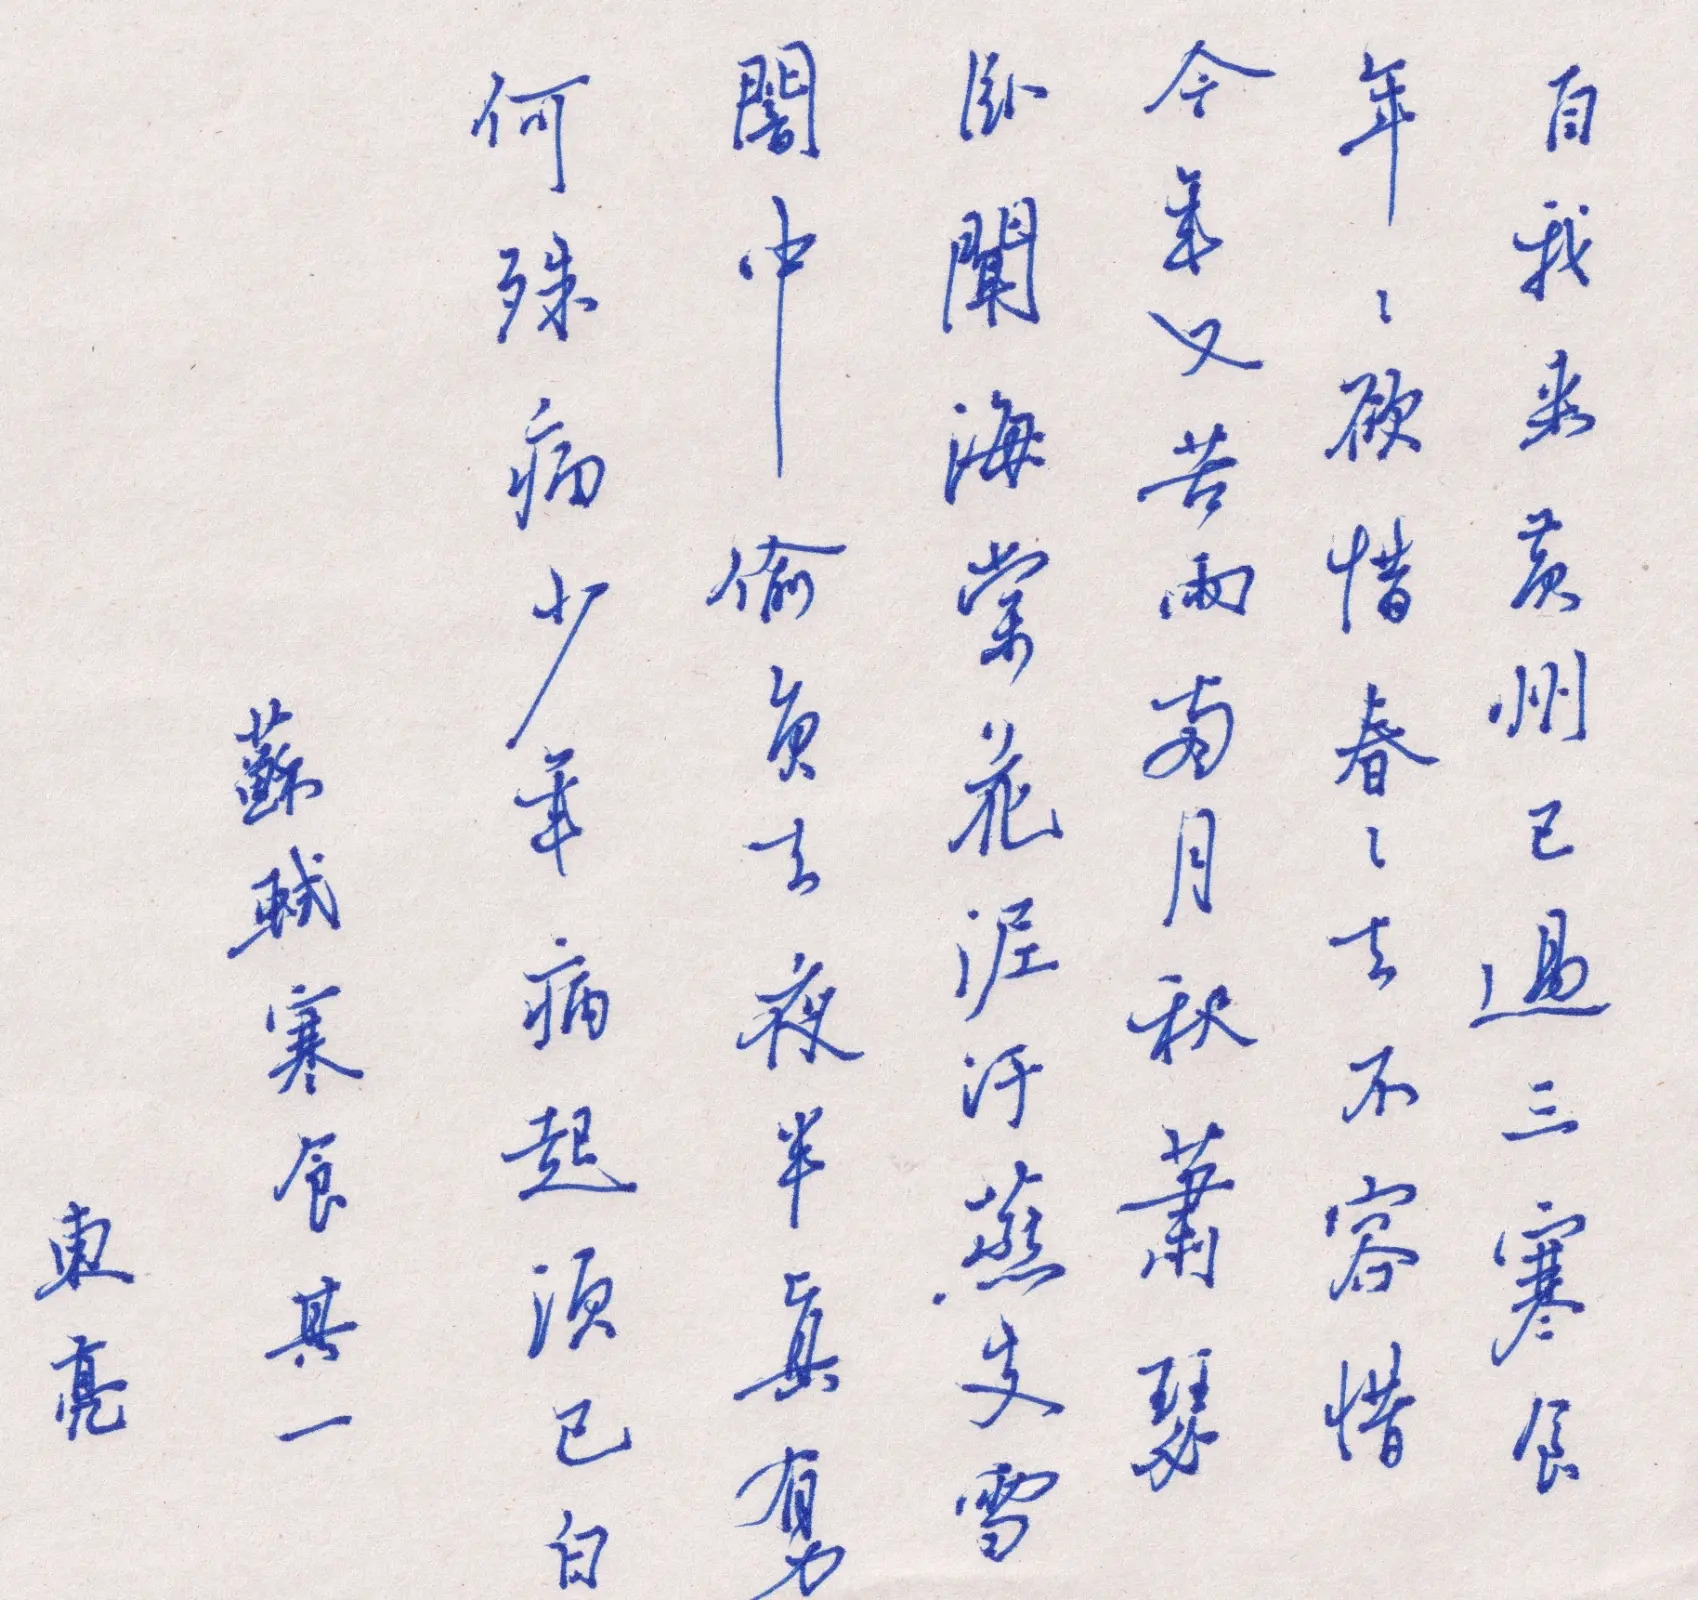 自我來黃州已過三寒食
年〻欲惜春〻去不容惜
今年又苦雨兩月秋蕭瑟
臥聞海棠花泥汙燕支雪
闇中偷負去夜半真有勇
何殊病少年病起須已白
蘇軾寒食其一
東亮